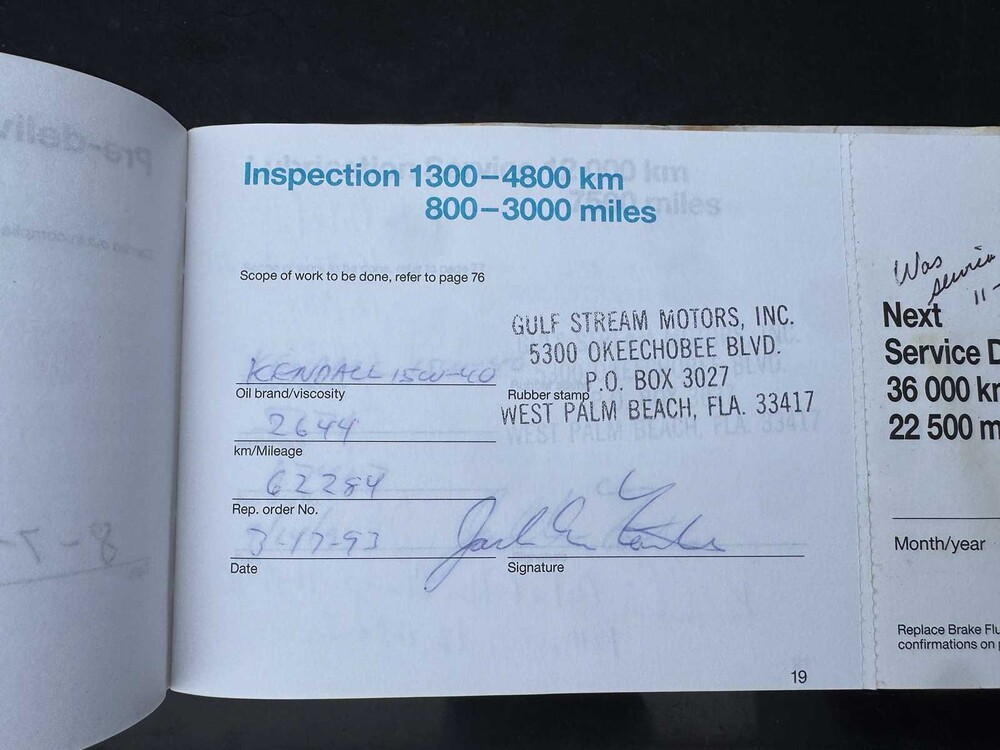 Inspection 1300–4800 km
800–3000 miles
Scope of work to be done, refer to page 76
GULF STREAM MOTORS, INC.
5300 OKEECHOBEE BLVD.
P.O. BOX 3027
WEST PALM BEACH, FLA. 33417
Rubber stamp
KENDALL 15W-40
Oil brand/viscosity
2644
km/Mileage
62284
Rep. order No.
3-17-93
Date
Signature
19
Was
service
11-
Next
Service D
36 000 km
22 500 m
Month/year
Replace Brake Flu
confirmations on p